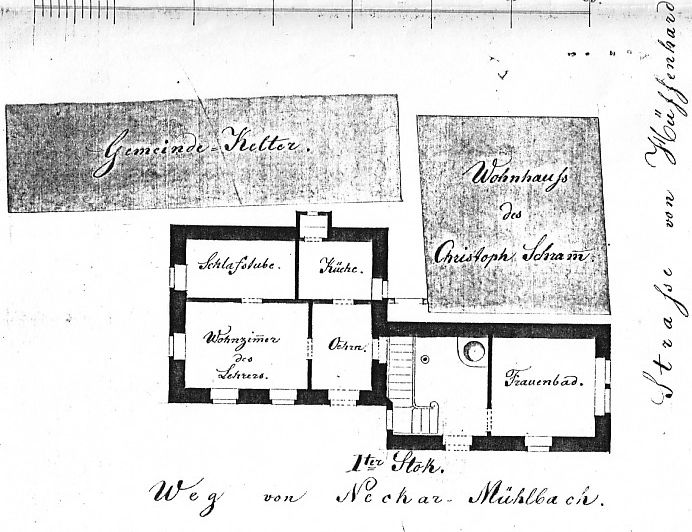 Gemeinde-Kelter.
Wohnhauss
des
Christoph Schram̅.
Strasse von Hüffenhard
Schlafstube.
Küche.
Wohnzim̅er
des
Lehrers.
Oehrn.
Frauenbad.
1ter Stok.
Weg von Neckar-Mühlbach.